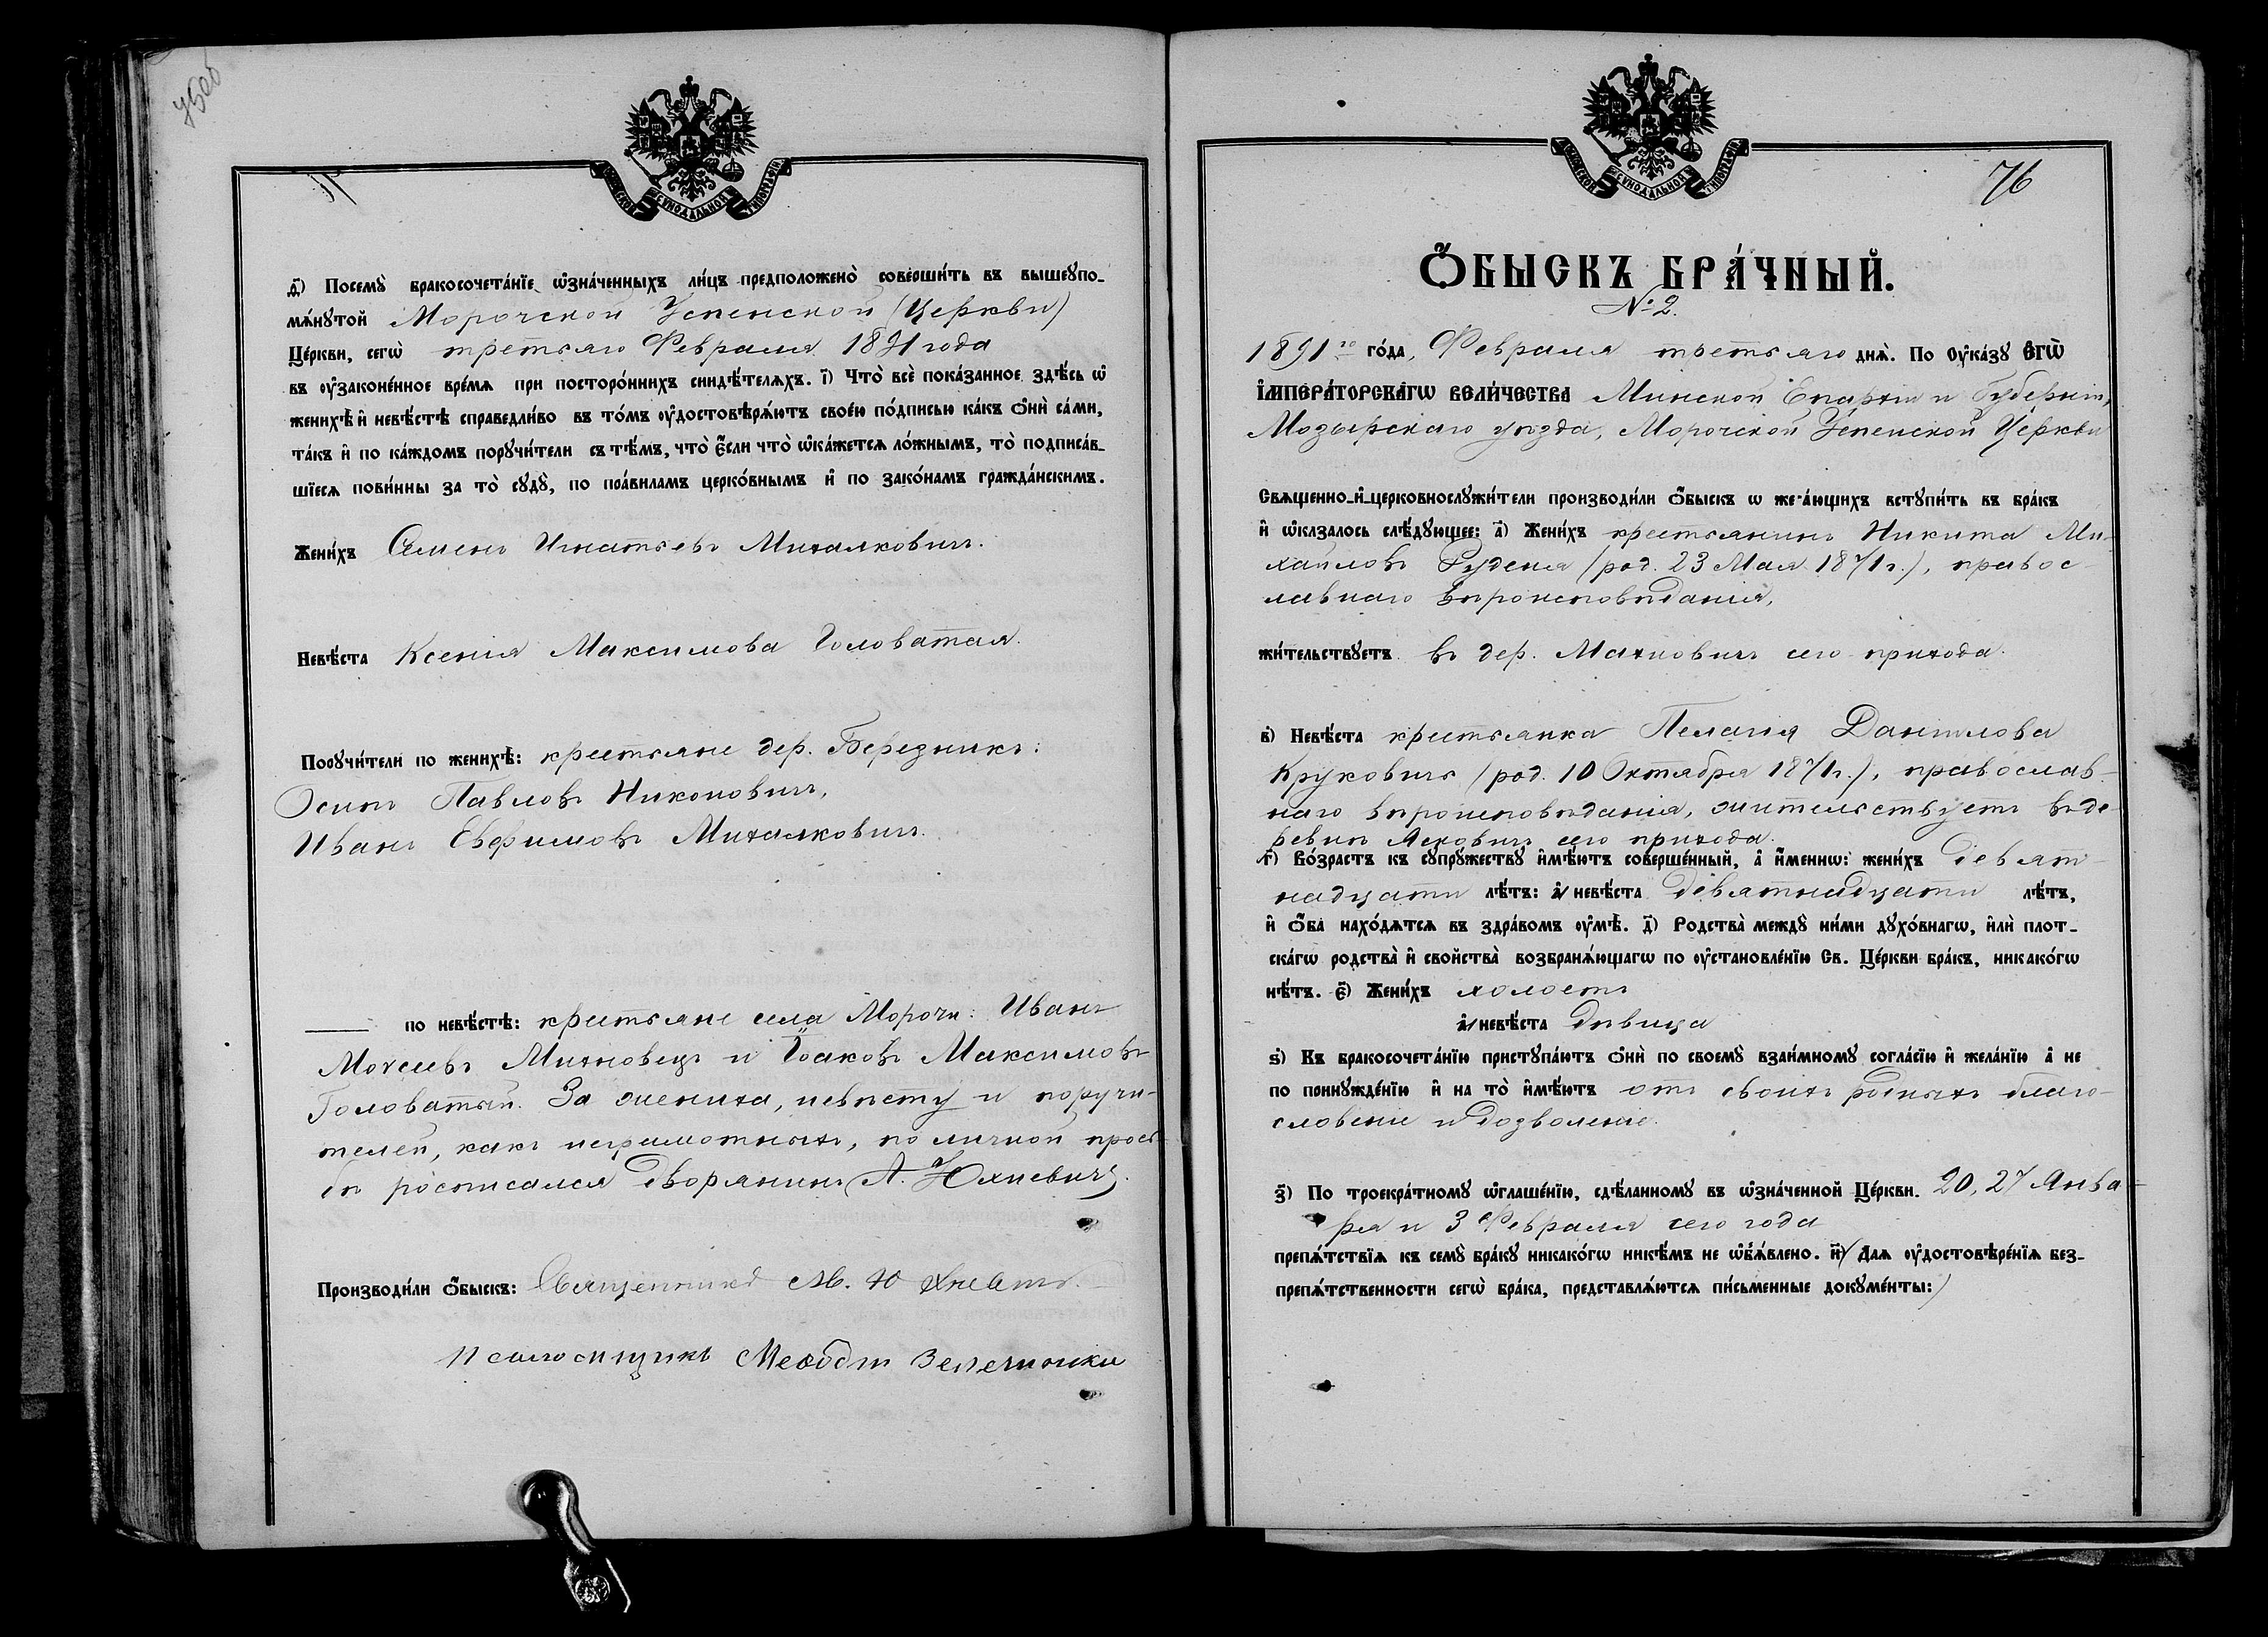 75об
МОСКОВСКОЙ СѴНОДАЛЬНОЙ ТИПОГРАФІИ
д҃і) Посемꙋ̀ бракосочета́нїе ѡ҆зна́ченныхъ ли́цъ предположено̀ соверши́ть въ вышеꙋпо-
мѧ́нꙋтой Морочской Успенской (Церкви)
Це́ркви, сегѡ̀ третьяго Февраля 1891 года
въ оу҆законе́нное вре́мѧ при посторо́ннихъ свидѣ́телѧхъ. і҃) Что̀ всѐ пока́занное здѣ́сь ѡ҆
женихѣ̀ и҆ невѣ́стѣ справедли́во въ то́мъ оу҆достовѣрѧ́ютъ свое́ю по́дписью ка́къ ѻ҆нѝ са́ми,
та́къ и҆ по ка́ждомъ порꙋчи́тели съ тѣ́мъ, что̀ є҆́сли что̀ ѡ҆ка́жетсѧ ло́жнымъ, то̀ подписа́в-
шїесѧ пови́нны за то̀ сꙋдꙋ̀, по пра́виламъ церко́внымъ и҆ по зако́намъ гражда́нскимъ.
Жени́хъ Семенъ Игнатьевъ Михалковичъ.
Невѣ́ста Ксенія Максимова Головатая.
Порꙋчи́тели по женихѣ̀: крестьяне дер. Березникъ:
Осипъ Павловъ Никоновичъ,
Иванъ Евфимовъ Михалковичъ.
по невѣ́стѣ: крестьяне села Морочи: Иванъ
Моѵсеевъ Михновецъ и Іоаковъ Максимовъ
Головатый. За жениха, невѣсту и поручи-
телей, какъ неграмотныхъ, по личной прось-
бѣ росписался дворянинъ А. Юхневичъ.
Производи́ли ѻ҆́быскъ: Священникъ М. Юхневичъ.
Псаломщикъ Меѳодій
МОСКОВСКОЙ СѴНОДАЛЬНОЙ ТИПОГРАФІИ
76
Ѻ҆́БЫСКЪ БРА́ЧНЫЙ.
№ 2.
1891го го́да, Февраля третьяго днѧ̀. По Оу҆ка́зꙋ Є҆гѡ̀
І҆мпера́торскагѡ вели́чества Минской Епархіи и Губерніи,
Мозырскаго уѣзда, Морочской Успенской Церкви
Свѧщенно-и҆-церковнослꙋжи́тели производи́ли ѻ҆́быскъ ѡ жела́ющихъ встꙋпи́ть въ бра́къ
и҆ ѡ҆казалось слѣ́дꙋющее: а҃) Жени́хъ крестьянинъ Никита Ми-
хайловъ Руденя (род. 23 Мая 1871 г.), правос-
лавнаго вѣроисповѣданія,
жи́тельствꙋетъ въ дер. Махновичъ сего прихода.
в҃) Невѣ́ста крестьянка Пелагія Даніилова
Круковичъ (род. 10 Октября 1871 г.), православ-
наго вѣроисповѣданія, жительствуетъ въ де-
ревнѣ Ясковичъ сего прихода.
г҃) Во́зрастъ къ сꙋпрꙋ́жествꙋ и҆мѣ́ютъ соверше́нный, а҆ и҆́меннѡ: жени́хъ девят-
надцати лѣ́тъ: а҆ невѣ́ста девятнадцати лѣ́тъ,
и҆ ѻ҆́ба нахо́дѧтсѧ въ здра́вомъ оу҆мѣ̀. д҃) Родства̀ междꙋ̀ ни́ми дꙋхо́внагѡ, и҆лѝ плот-
ска́гѡ родства̀ и҆ свойства̀ возбранѧ́ющагѡ по оу҆становле́нїю Св. Це́ркви бра́къ, никако́гѡ
нѣ́тъ. є҃) Жени́хъ холостъ
а҆ невѣ́ста дѣвица
ѕ҃) Къ бракосочета́нїю пристꙋпа́ютъ ѻ҆нѝ по своемꙋ̀ взаи́мномꙋ согла́сїю и҆ жела́нїю а҆ не
по принꙋжде́нїю и҆ на то̀ и҆мѣ́ютъ отъ своихъ родныхъ благо-
словеніе и дозволеніе.
з҃) По троекра́тномꙋ ѡ҆глаше́нїю, сдѣ́ланномꙋ въ ѡ҆зна́ченной Це́ркви. 20, 27 Янва-
ря и 3 Февраля сего года
препѧ́тствїѧ къ семꙋ̀ бра́кꙋ никако́гѡ никѣ́мъ не ѡ҆б̾ѧ́влено. и҃) Длѧ оу҆достовѣре́нїѧ без-
препѧ́тственности сегѡ̀ бра́ка, представлѧ́ютсѧ пи́сьменные докꙋме́нты:)